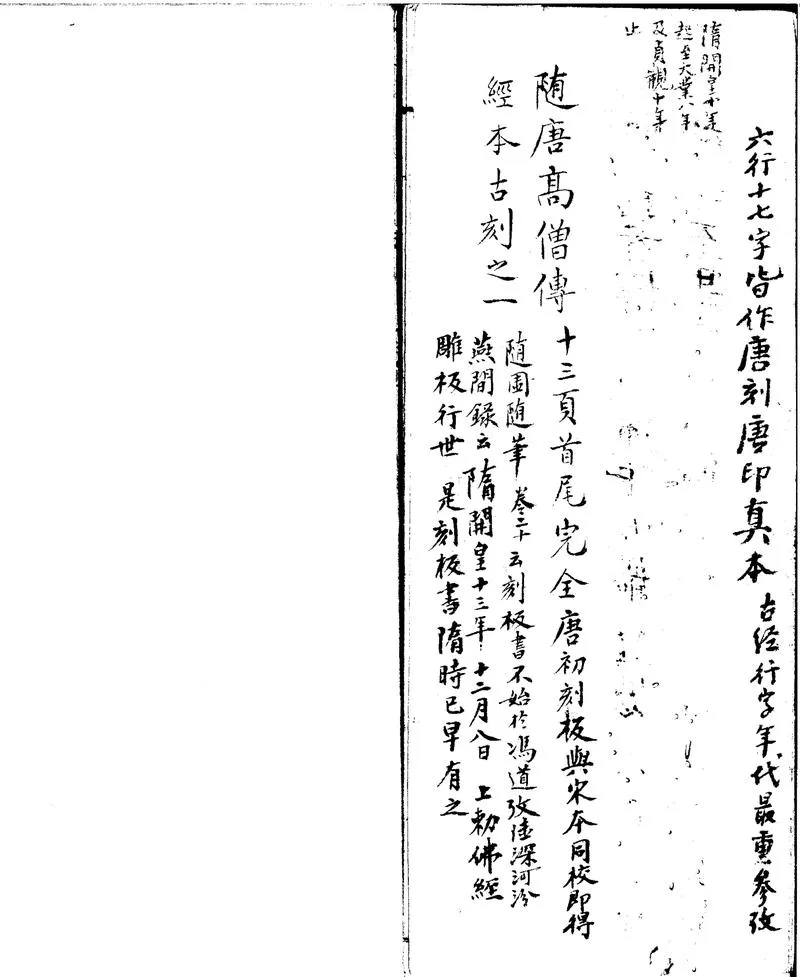 六行十七字皆作唐刻唐印真本 古经行字年代最重参攷
隋開皇十
起至大業八年
及貞觀十年
止
随唐高僧傳 十三頁首尾完全唐初刻板與宋本同校即得
經本古刻之一
随園随筆 卷二十云刻板書不始於馮道攷陸深河汾
燕閒錄云隋開皇十三年十二月八日 上勅佛經
雕板行世 是刻板書隋時已早有之